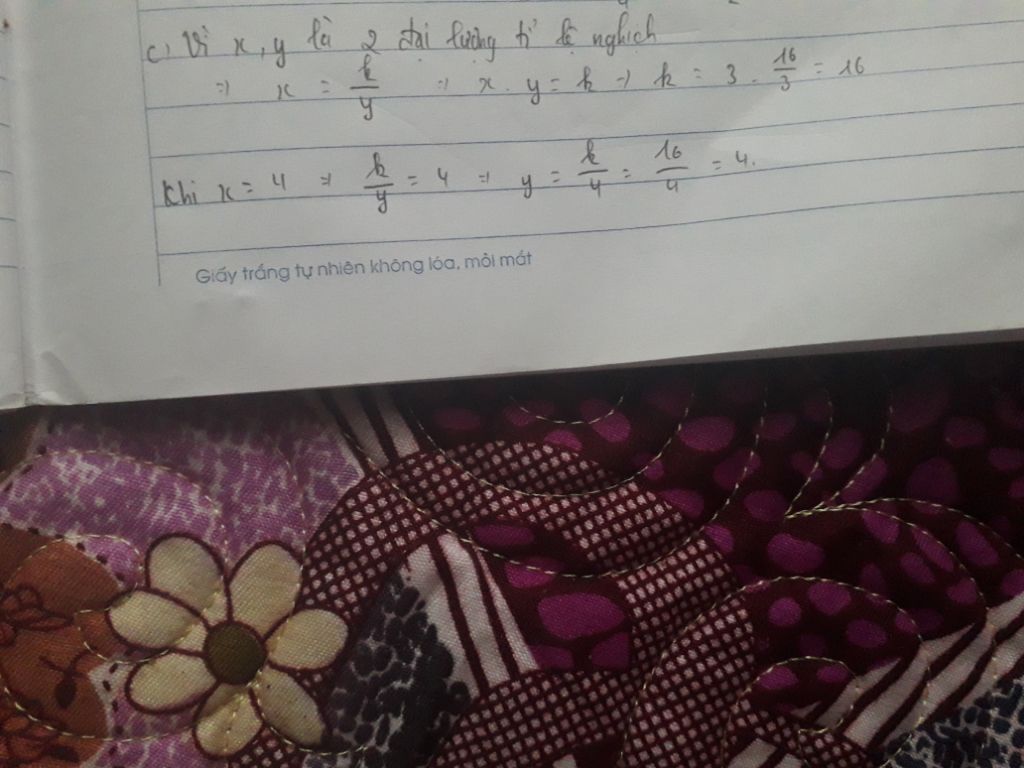 c, Vì x, y là 2 đại lượng tỉ lệ nghịch
=> x = k/y => x . y = k => k = 3 . 16/3 = 16
Khi x = 4 => k/y = 4 => y = k/4 = 16/4 = 4.
Giấy trắng tự nhiên không lóa, mỏi mắt